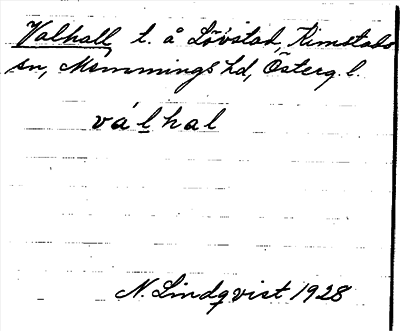 Valhall, t. å Lövstad, Kimstads
sn, Memmings hd, Österg. l.
válhal
N. Lindqvist 1928